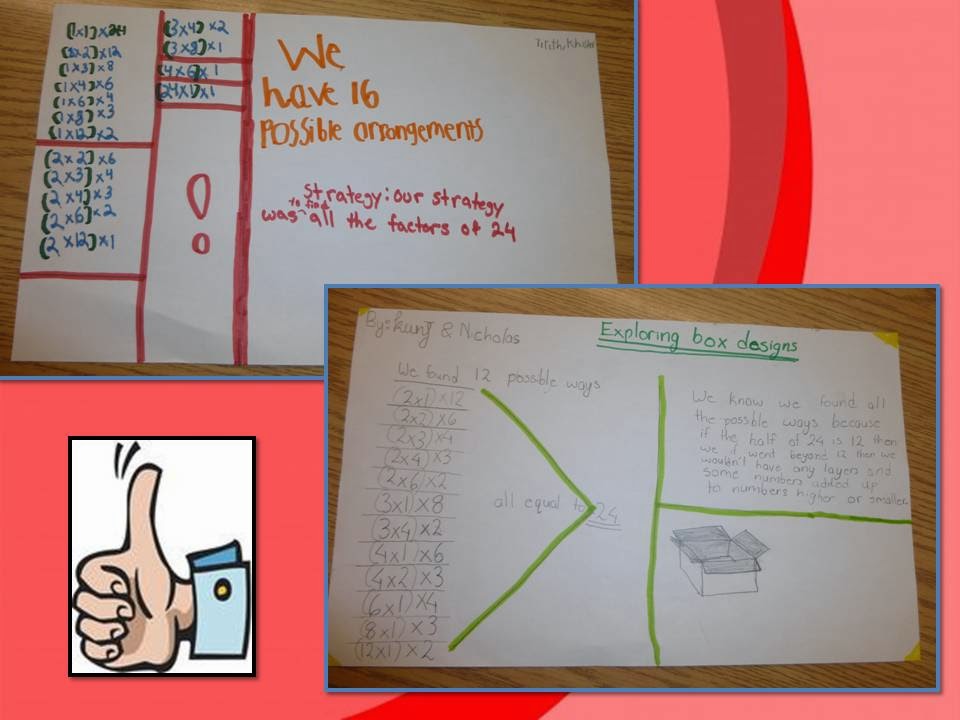 (1x1)x24
(1x2)x12
(1x3)x8
(1x4)x6
(1x6)x4
(1x8)x3
(1x12)x2
(2x2)x6
(2x3)x4
(2x4)x3
(2x6)x2
(2x12)x1
(3x4)x2
(3x8)x1
(4x6)x1
(24x1)x1
!
We
have 16
possible arrangements
Strategy: our strategy
was to find all the factors of 24
By: kunj & Nicholas
Exploring box designs
We found 12 possible ways
(2x1)x12
(2x2)x6
(2x3)x4
(2x4)x3
(2x6)x2
(3x1)x8
(3x4)x2
(4x1)x6
(4x2)x3
(6x1)x4
(8x1)x3
(12x1)x2
all equal to 24
We know we found all
the possible ways because
if the half of 24 is 12 then
we if went beyond 12 then we
wouldn't have any layers and
some numbers added up
to numbers higher or smaller